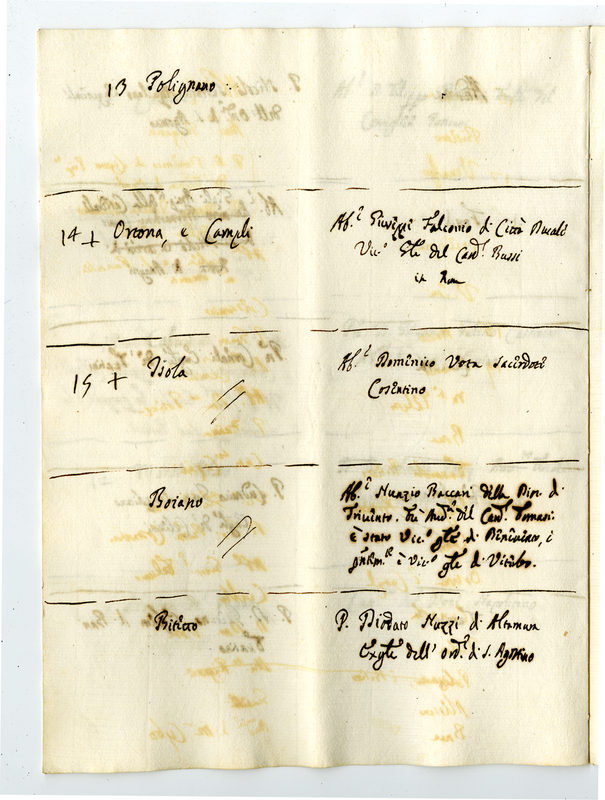 13 Polignano
14 + Ortona, e Campli
Ab.e Giuseppe Falconio di Città Ducale
Vic.o Gle del Card.l Bussi
in Rom
15 + Isola
Ab.e Dominico Vota Sacerdote
Cosentino
Boiano
Ab.e Nunzio Baccari della Dio. di
Trivinto. Fù Aud.e del Card. Tomasi.
è stato Vic.o gle di Binivinto, e
è Vic.o gle di Viterbo.
Bitetto
P. Diodato Nuzzi di Altamura
Exgle dell' Ord.e di S. Agostino